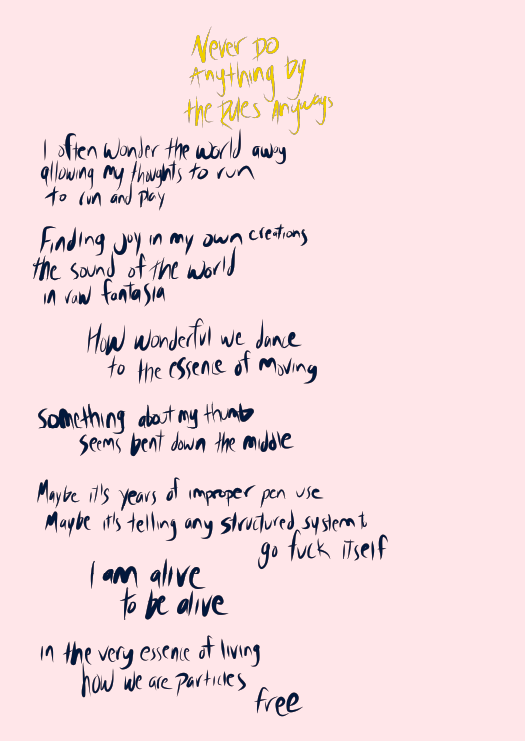 Never Do
Anything by
the Rules Anyways
I often wonder the world away
allowing my thoughts to run
to run and play
Finding joy in my own creations
the sound of the world
in raw fantasia
How wonderful we dance
to the essence of moving
something about my thumb
seems bent down the middle
Maybe it's years of improper pen use
Maybe it's telling any structured system t
go fuck itself
I am alive
to be alive
in the very essence of living
how we are particles
free